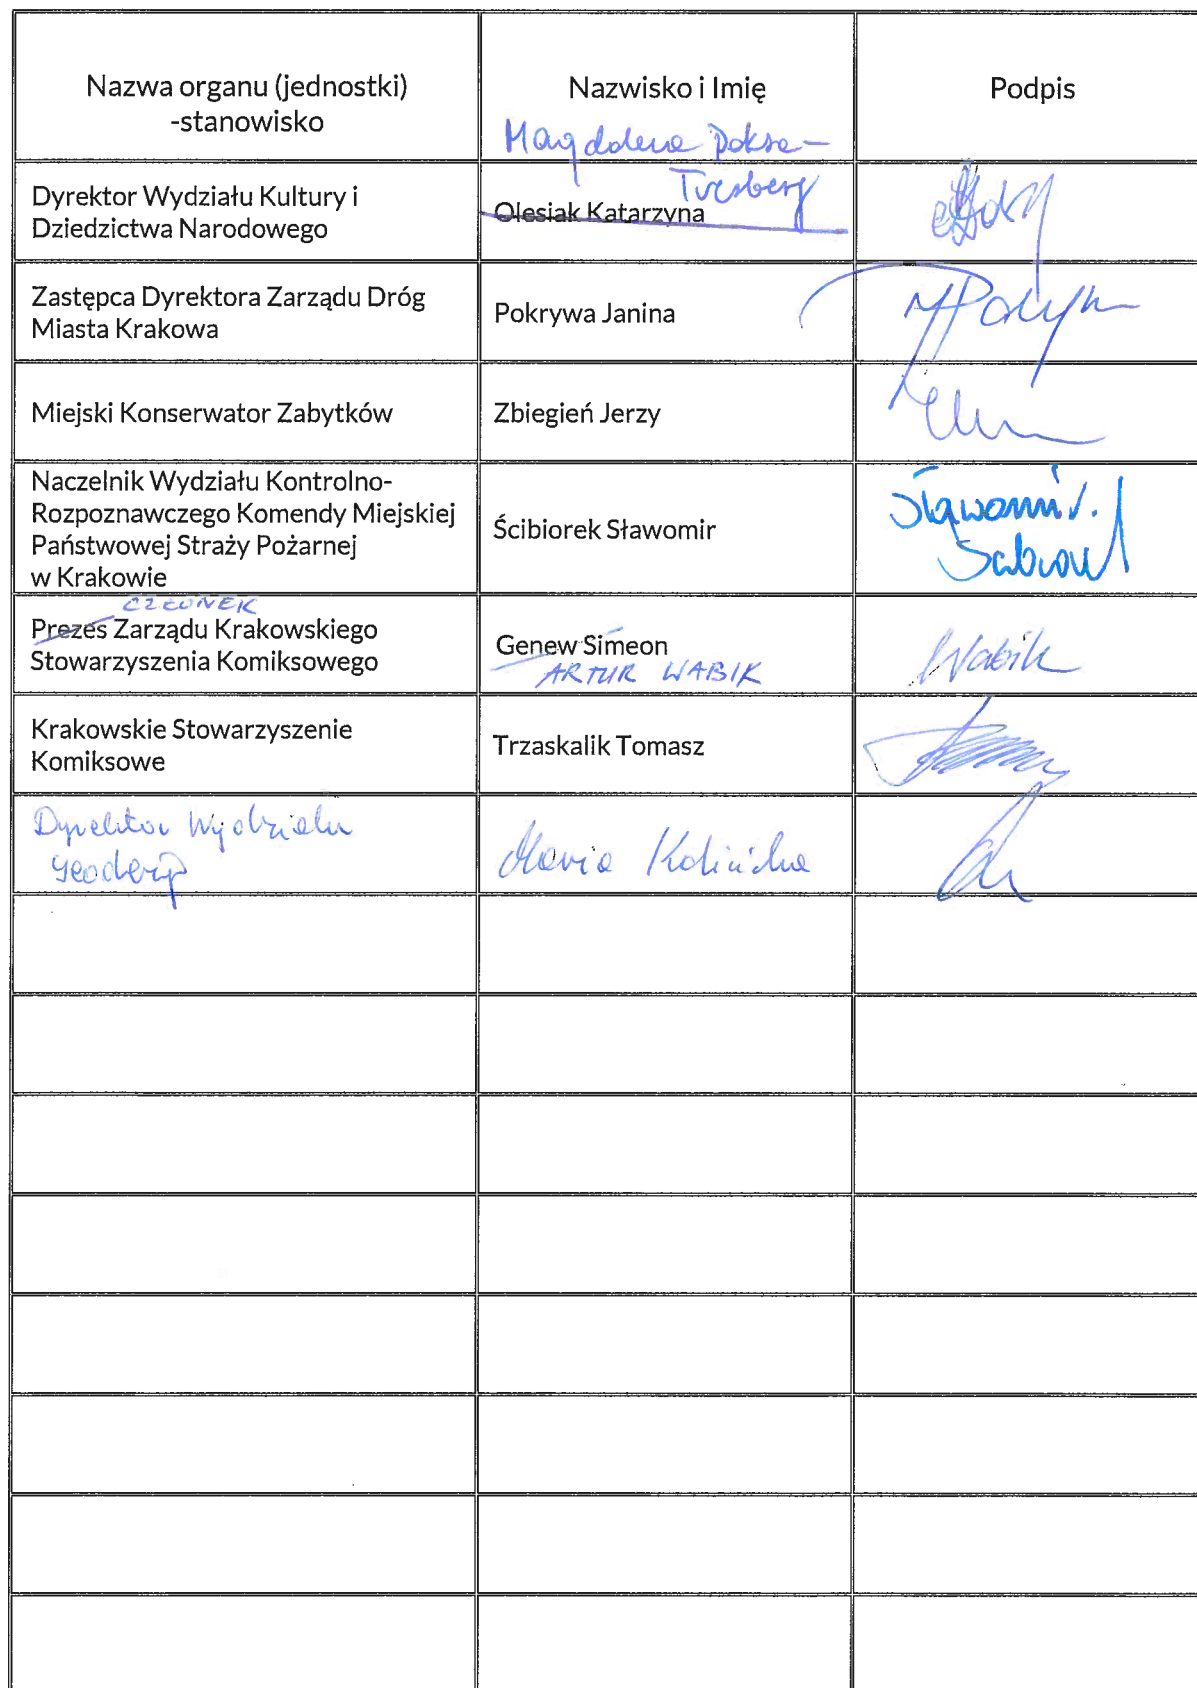 Nazwa organu (jednostki)
-stanowisko
Nazwisko i Imię
Podpis
Magdalena Doksa-
Tverberg
Dyrektor Wydziału Kultury i
Dziedzictwa Narodowego
Olesiak Katarzyna
Zastępca Dyrektora Zarządu Dróg
Miasta Krakowa
Pokrywa Janina
Miejski Konserwator Zabytków
Zbiegień Jerzy
Naczelnik Wydziału Kontrolno-
Rozpoznawczego Komendy Miejskiej
Państwowej Straży Pożarnej
w Krakowie
Ścibiorek Sławomir
Sławomir
CZŁONEK
Prezes Zarządu Krakowskiego
Stowarzyszenia Komiksowego
Genew Simeon
ARTUR WABIK
Wabik
Krakowskie Stowarzyszenie
Komiksowe
Trzaskalik Tomasz
Dyrektor Wydziału
Geodezji
Maria Kolińska